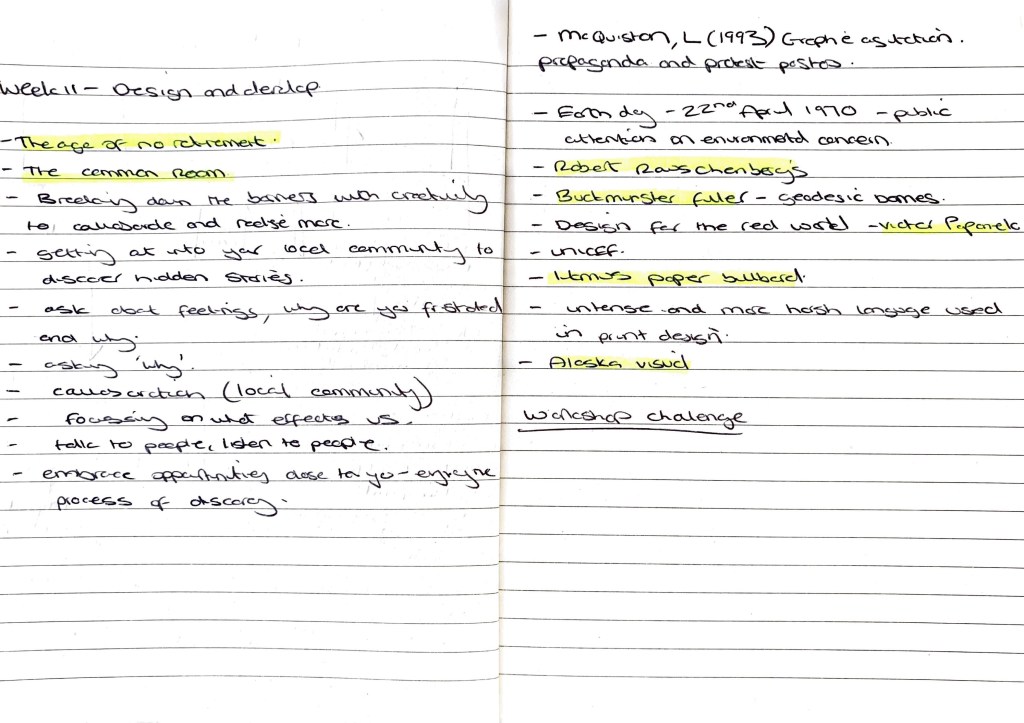 Week 11 - Design and develop
- The age of no retirement.
- The common Room
- Breaking down the barriers with creativity
to collaborate and realise more.
- getting at into your local community to
discover hidden stories.
- ask about feelings, why are you frustrated
and why.
- asking 'why'.
- collaboration (local community)
- focussing on what effects us.
- talk to people, listen to people.
- embrace opportunities close to you - enjoying
process of discovery.
- McQuiston, L (1993) Graphic agitation.
propaganda and protest posters.
- Earth day - 22nd April 1970 - public
attention on environmental concern.
- Robert Rauschenberg's
- Buckminster fuller - geodesic Domes.
- Design for the real world - victor Papanek
- unicef.
- paper billboard.
- intense and more harsh language used
in print design.
- Alaska visual
Workshop challenge